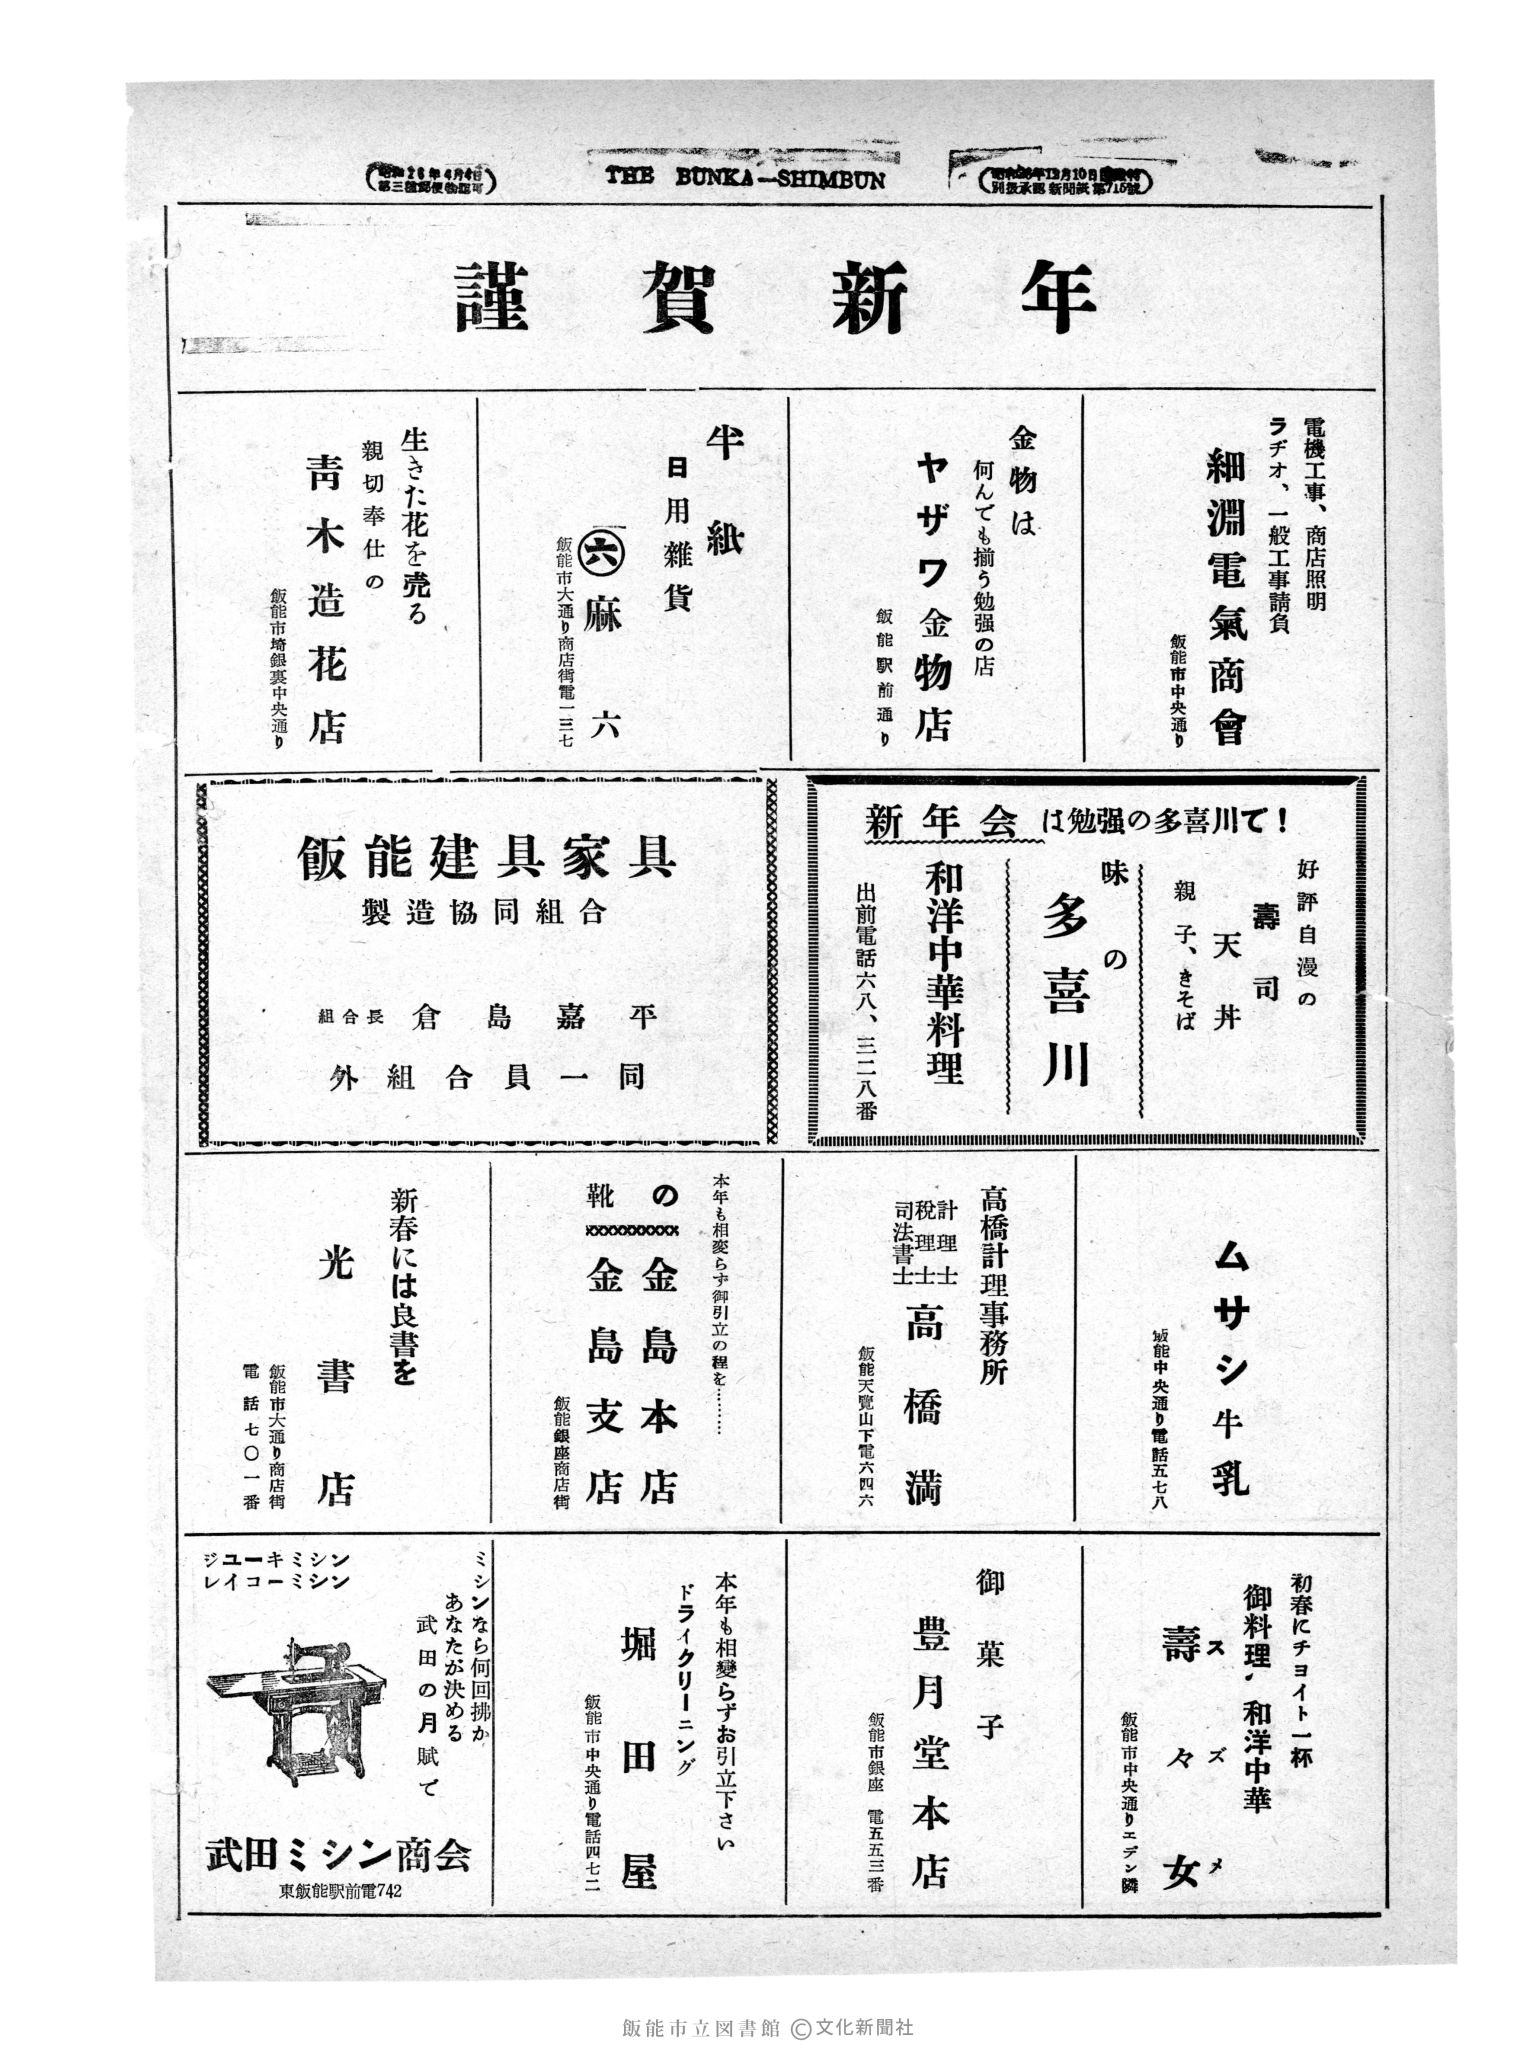 昭和26年4月4日
第三種郵便物認可
THE BUNKA—SHIMBUN
別扱承認新聞紙第715號
謹賀新年
電機工事、商店照明
ラヂオ、一般工事請負
細淵電氣商會
飯能市中央通り
金物は
何んでも揃う勉强の店
ヤザワ金物店
飯能駅前通り
半紙
日用雜貨
六 麻六
飯能市大通り商店街電一三七
生きた花を売る
親切奉仕の
靑木造花店
飯能市埼銀裏中央通り
新年会は勉强の多喜川で!
好評自漫の
壽司
天丼
親子、きそば
味の
多喜川
和洋中華料理
出前電話六八、三二八番
飯能建具家具
製造協同組合
組合長 倉島嘉平
外組合員一同
ムサシ牛乳
飯能中央通り電話五七八
高橋計理事務所
計理士
稅理士
司法書士
高橋満
飯能天覽山下電六四六
本年も相変らず御引立の程を………
靴の
金島本店
金島支店
飯能銀座商店街
新春には良書を
光書店
飯能市大通り商店街
電話七〇一番
初春にチョイト一杯
御料理、和洋中華
スズメ
壽々女
飯能市中央通りエデン隣
御菓子
豊月堂本店
飯能市銀座 電五五三番
本年も相變らずお引立下さい
ドライクリーニング
堀田屋
飯能市中央通り電話四七二
ミシンなら何回拂か
あなたが決める
武田の月賦で
ジユーキミシン
レイコーミシン
武田ミシン商会
東飯能駅前電742
飯能市立図書館 ©文化新聞社